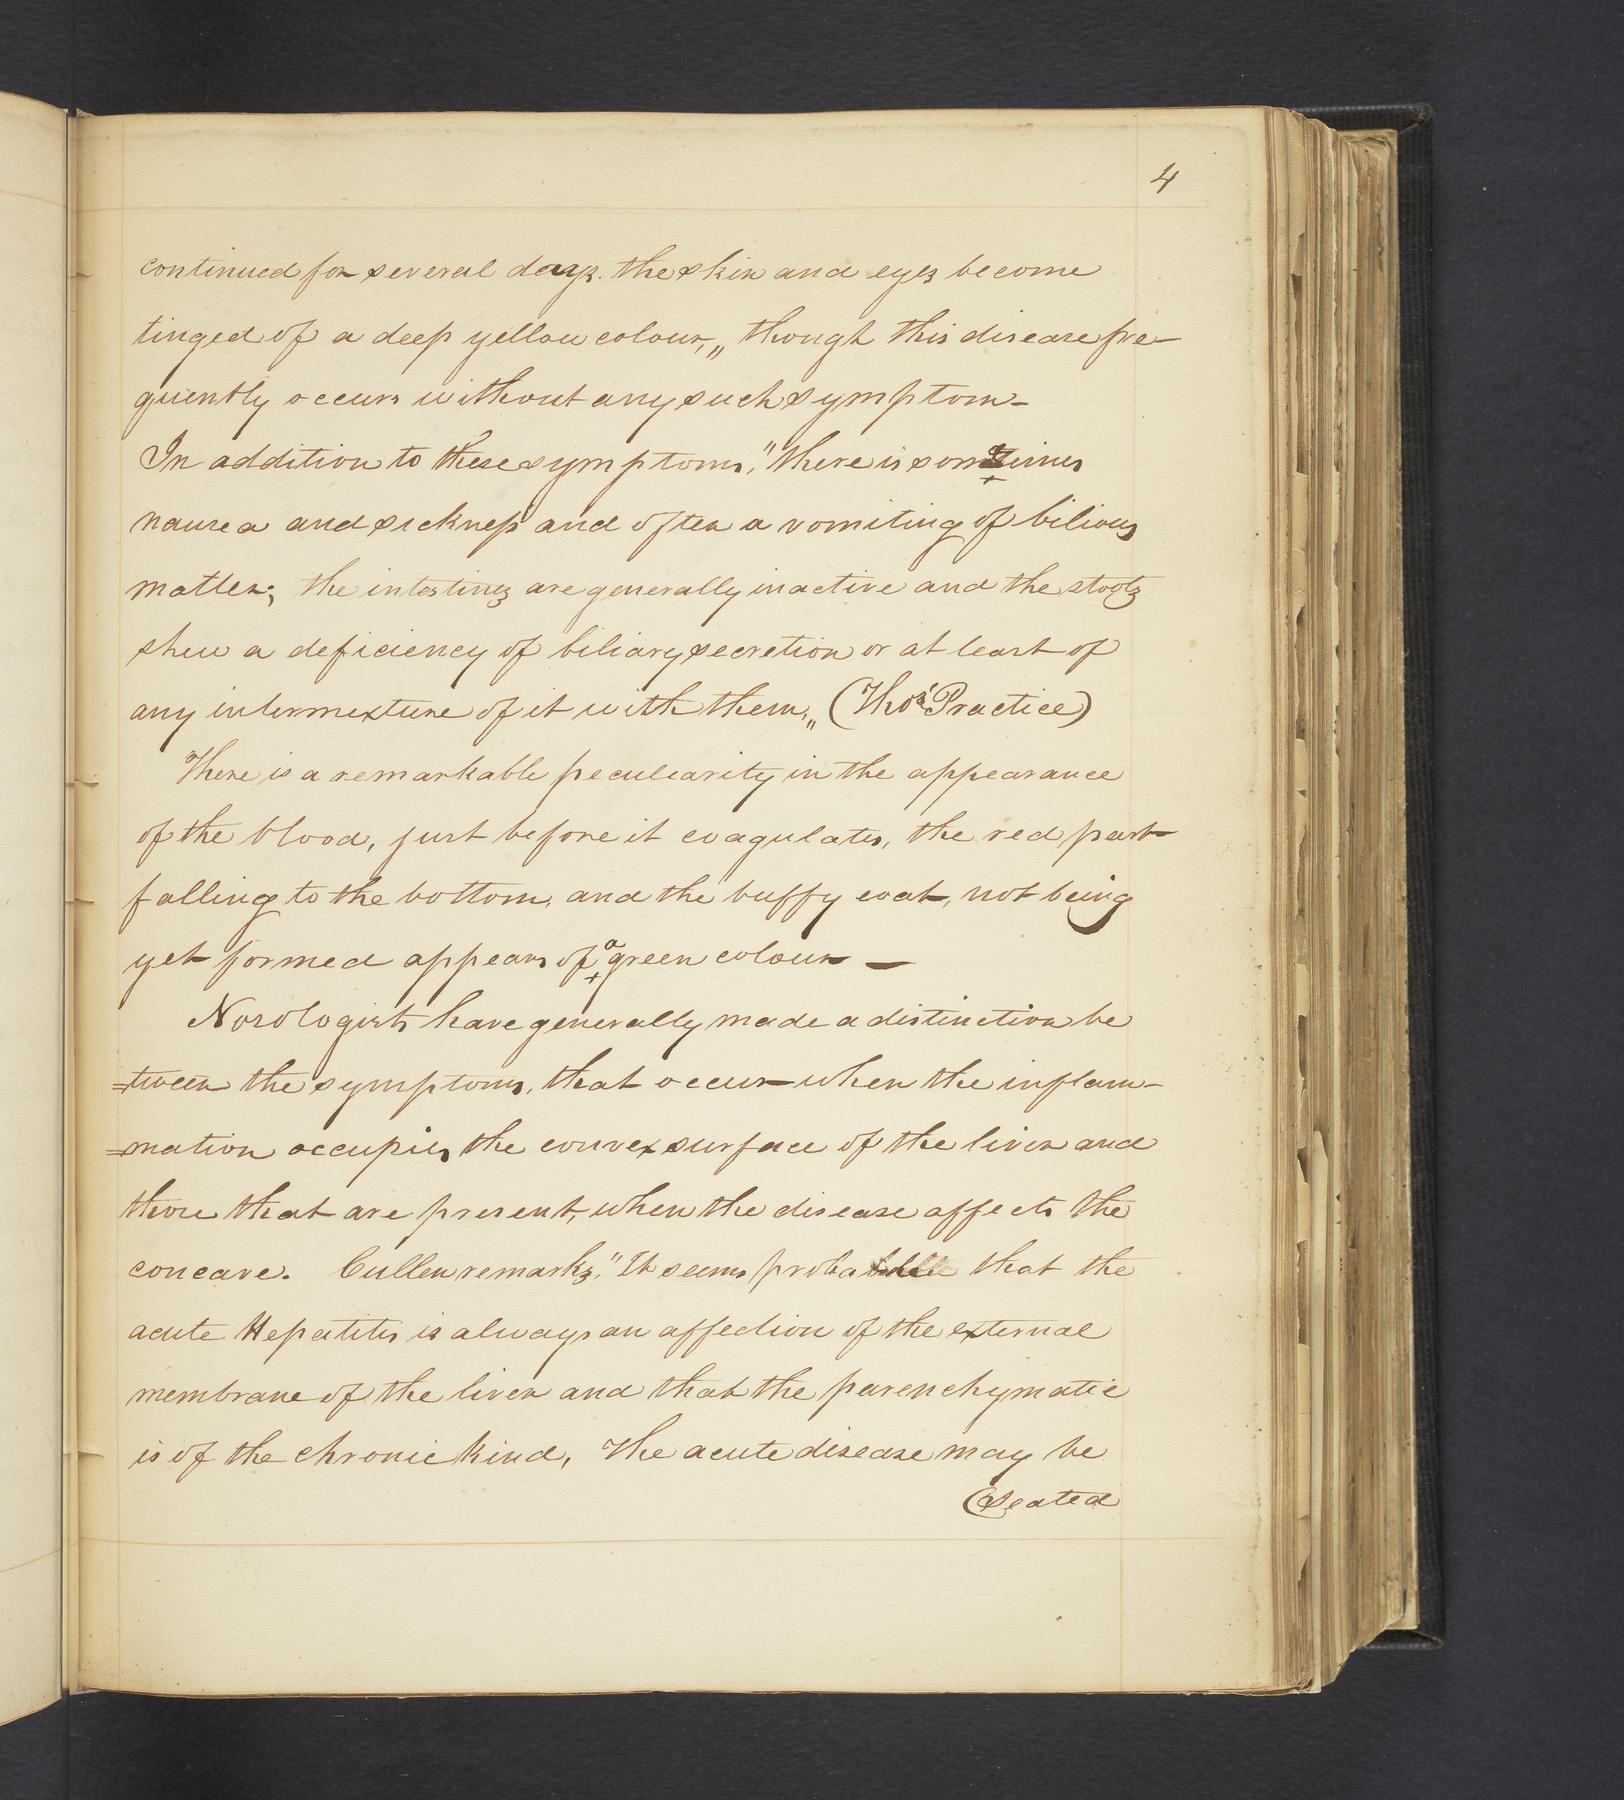 4
continued for several days. the skin and eyes become
tinged of a deep yellow colour,„ though this disease fre-
quently occurs without any such symptom-
In addition to these symptoms, "there is sometimes
nausea and sickness and often a vomiting of bilious
matter; the intestines are generally inactive and the stools
shew a deficiency of biliary secretion or at least of
any intermexture of it with them,„ (Thos' Practice)
There is a remarkable peculearity in the appearance
of the blood, just before it coagulates, the red part
falling to the bottom, and the buffy coat, not being
yet formed appears of a green colour —
Nosologists have generally made a distinction be
=tween the symptoms, that occur when the inflam-
=mation occupies the convex surface of the liver and
those that are present, when the disease affects the
concave. Cullen remarks, "It seems probable that the
acute Hepatitis is always an affection of the external
membrane of the liver and that the parenchymatic
is of the chronic kind, The acute disease may be
(seated